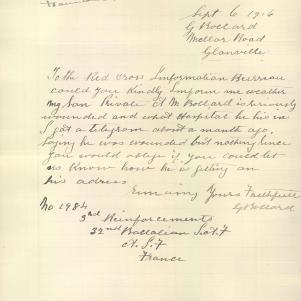 Sept 6 1916
G Bollard
Mellor Road
Glanville
To the Red Cross Information Burreau
could you Kindly Imform me weather
my Son Private A M Bollard is seriously
wounded and what Hospital he his in
I got a telegram about a month ago
saying he was wounded but nothing since
you would oblige if you could let
us Know how he is getting on
his address
Remaing Yours Faithfull
G Bollard
No 1984
3rd Reinforcements
32nd Battalian
A. I. F
France